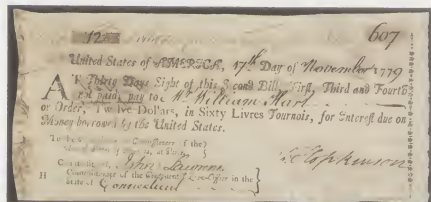 12 607
United States of AMERICA, 17th Day of November 1779
AT Thirty Days Sight of this Second Bill, First, Third and Fourth
not paid, pay to Mr. William Hart
or Order, Twelve Dollars, in Sixty Livres Tournois, for Interest due on
Money borrowed by the United States.
To the Commissioner or Commissioners of the
United States of America, at Paris.
Countersigned, John Lawrence
H Commissioner of the Continental Loan-Office in the
State of Connecticut
F Hopkinson